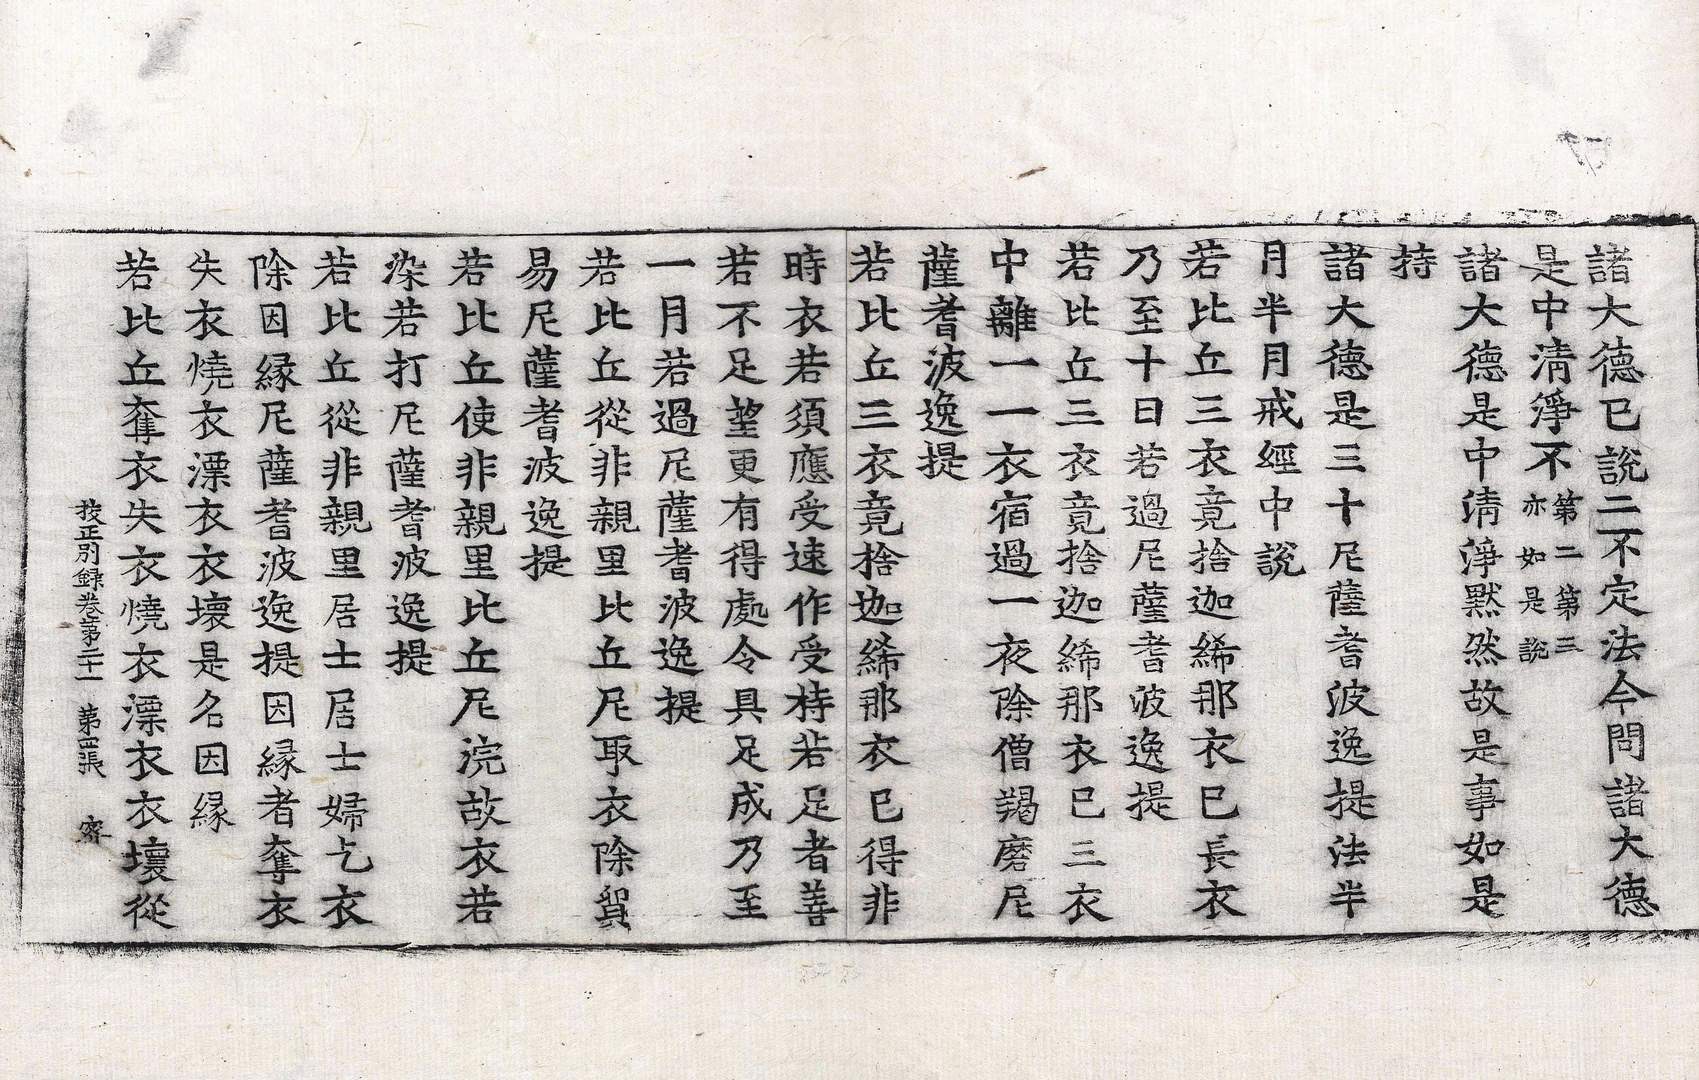 諸大德已說二不定法今問諸大德
是中淸淨不第二第三亦如是說
諸大德是中淸淨默然故是事如是
持
諸大德是三十尼薩耆波逸提法半
月半月戒經中說
若比丘三衣竟捨迦絺那衣已長衣
乃至十日若過尼薩耆波逸提
若比丘三衣竟捨迦絺那衣已三衣
中離一一衣宿過一夜除僧羯磨尼
薩耆波逸提
若比丘三衣竟捨迦絺那衣已得非
時衣若須應受速作受持若足者善
若不足望更有得處令具足成乃至
一月若過尼薩耆波逸提
若比丘從非親里比丘尼取衣除貿
易尼薩耆波逸提
若比丘使非親里比丘尼浣故衣若
染若打尼薩耆波逸提
若比丘從非親里居士居士婦乞衣
除因縁尼薩耆波逸提因縁者奪衣
失衣燒衣漂衣衣壞是名因縁
若比丘奪衣失衣燒衣漂衣衣壞從
挍正別録卷第二十一 第四張